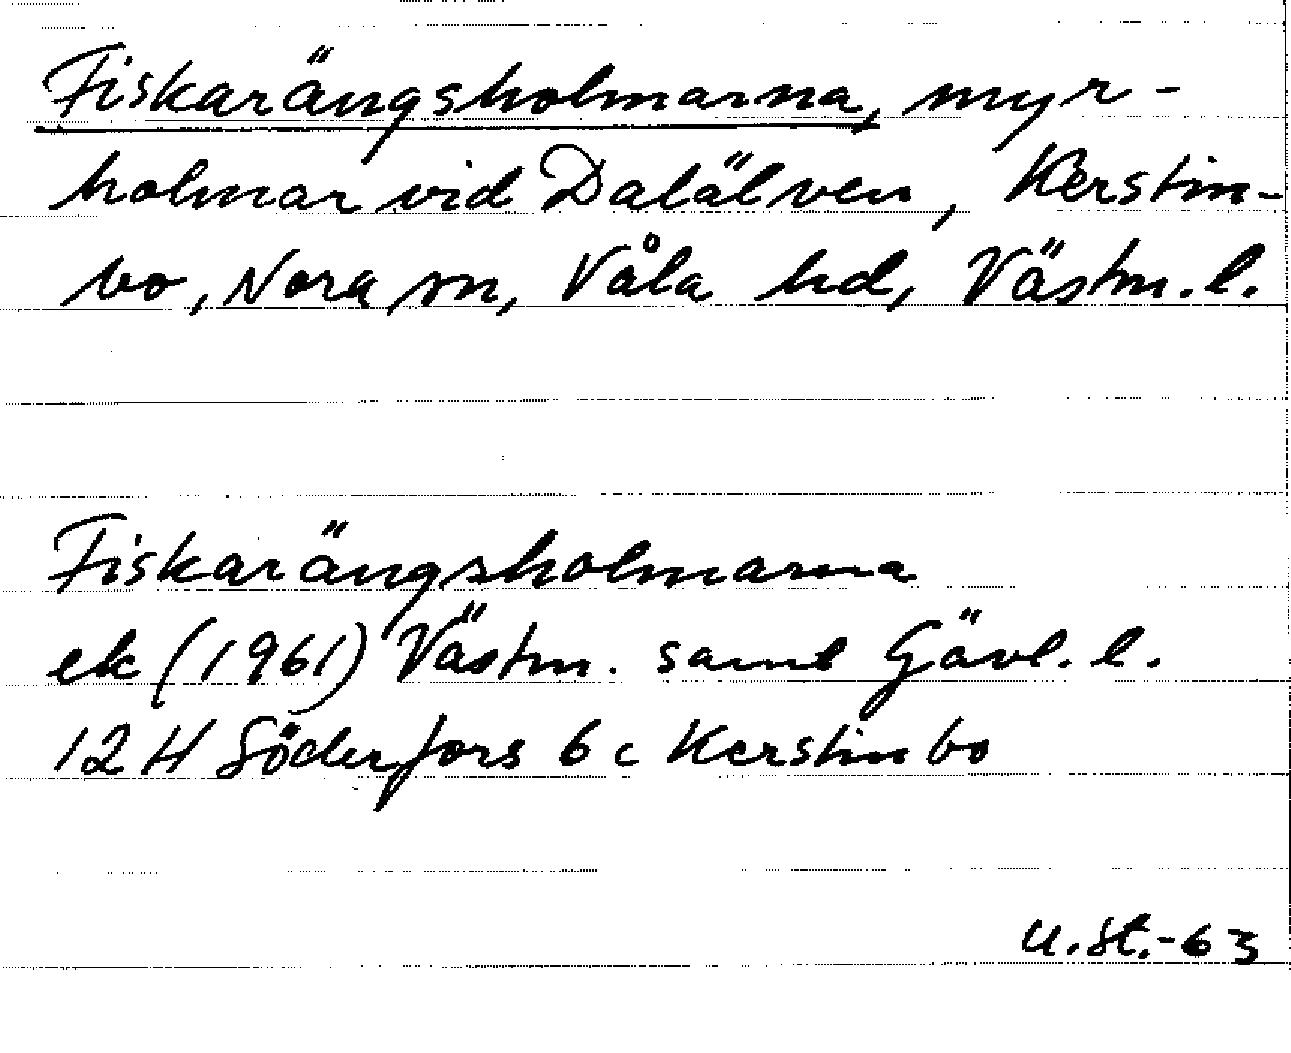 Fiskarängsholmarna, myr-
holmar vid Dalälven, Kerstin-
bo, Nora sn, Våla hd, Västm. l.
Fiskarängsholmarna
ek (1961) Västm. samt Gävl. l.
12 H Söderfors 6 c Kerstinbo
U. St. -63